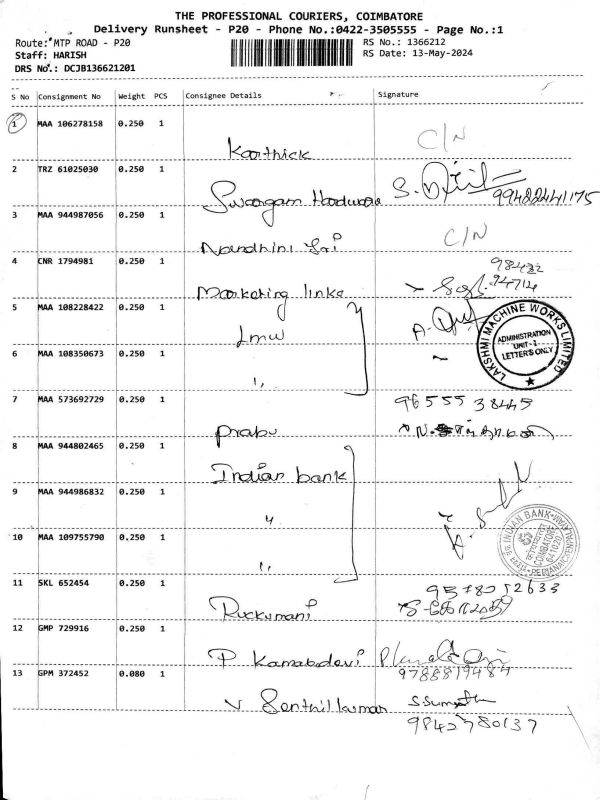 THE PROFESSIONAL COURIERS, COIMBATORE
Delivery Runsheet - P20 - Phone No.:0422-3505555 - Page No.:1
Route: MTP ROAD - P20
RS No.: 1366212
Staff: HARISH
RS Date: 13-May-2024
DRS No.: DCJB136621201
S No Consignment No Weight PCS Consignee Details Signature
1 MAA 106278158 0.250 1
Karthick C/N
2 TRZ 61025030 0.250 1
Swargam Hardware 99422441175
3 MAA 944987056 0.250 1
Nandhini Sri C/N
4 CNR 1794981 0.250 1
98432
Marketing links 94714
5 MAA 108228422 0.250 1
Lmw
LAKSHMI MACHINE WORKS LIMITED
ADMINISTRATION
UNIT-2
LETTER'S ONLY
6 MAA 108350673 0.250 1
"
7 MAA 573692729 0.250 1
96555 38445
Prabu
8 MAA 944802465 0.250 1
Indian bank
9 MAA 944986832 0.250 1
"
10 MAA 109755790 0.250 1
"
INDIAN BANK
COIMBATORE
641020
11 SKL 652454 0.250 1
9578052633
Ruckumani
12 GMP 729916 0.250 1
P Kamaladevi
9788819484
13 GPM 372452 0.080 1
V Senthilkumar
9842780137